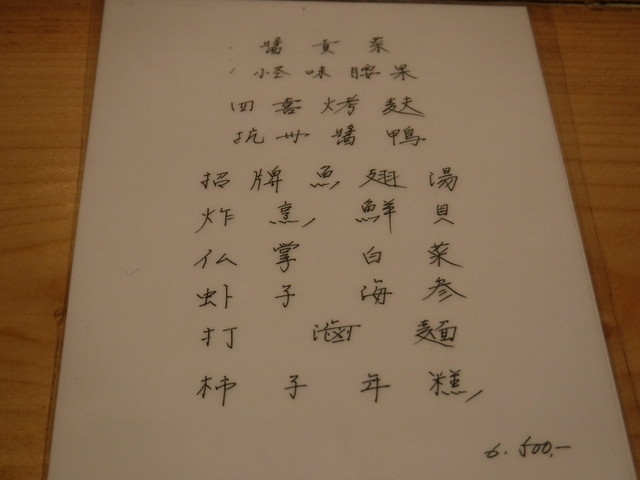 醬貢菜
怪味腰果
四喜烤麩
杭州醬鴨
招牌魚翅湯
炸烹鮮貝
仏掌白菜
虾子海参
打滷麵
柿子年糕
6.500.-